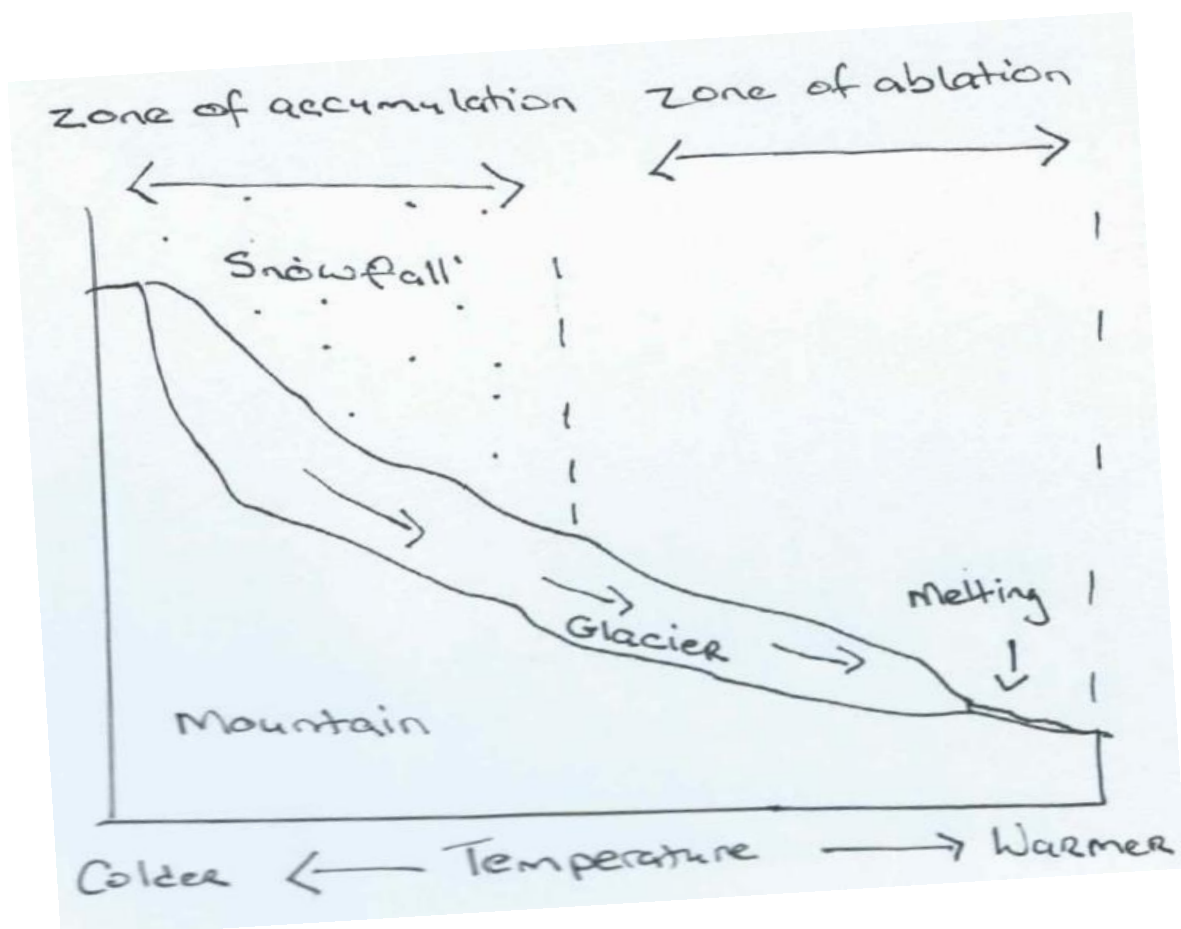 zone of accumulation
zone of ablation
Snowfall
Melting
Glacier
Mountain
Colder
Temperature
Warmer